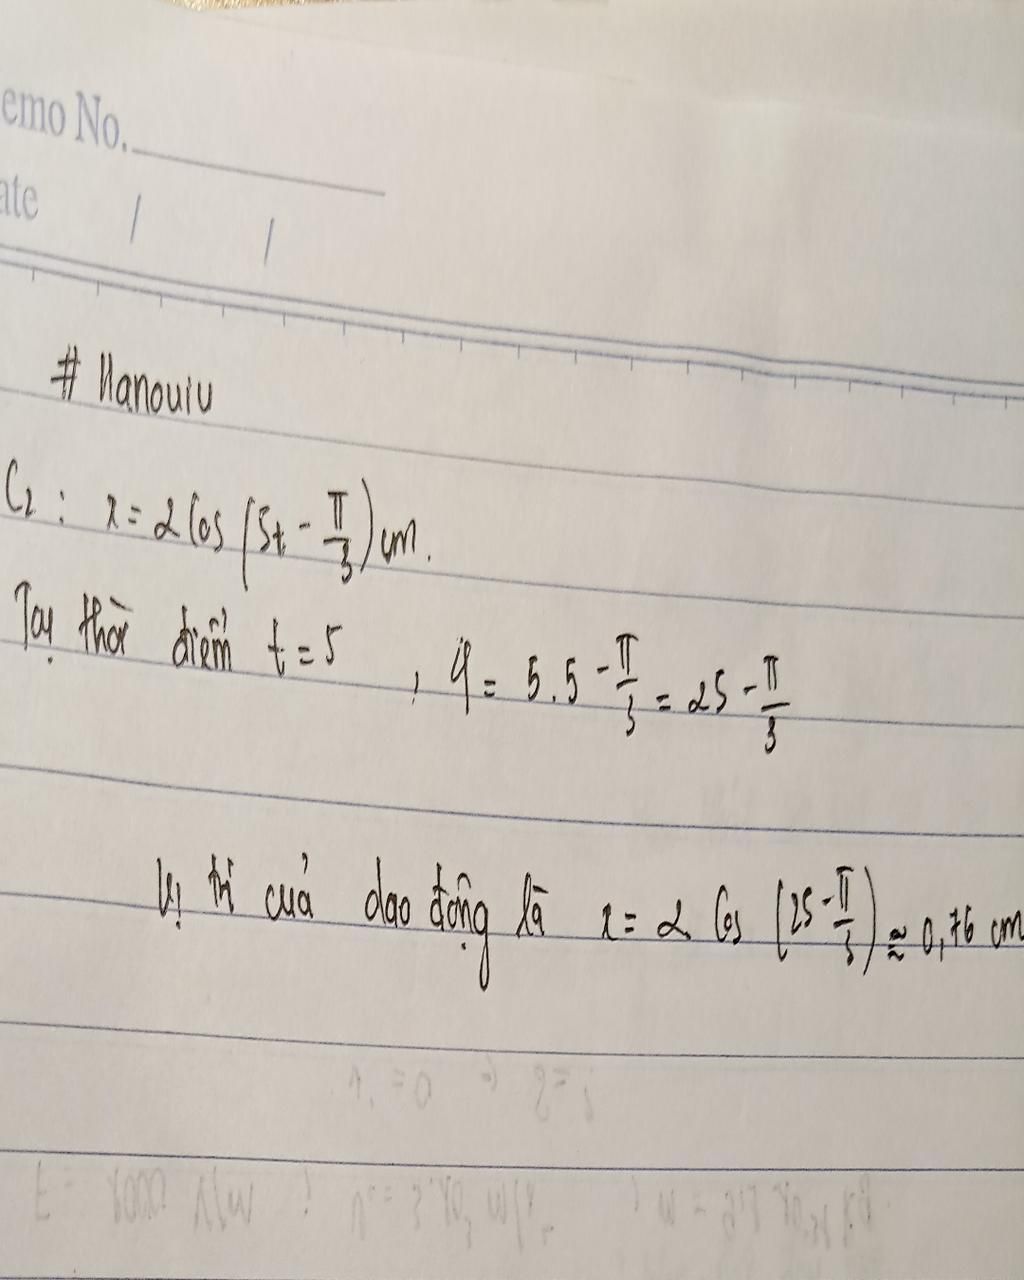 emo No.
ate / /
# Hanouiu
C2 : x = 2 Cos (5t - π/3) cm.
Tại thời điểm t = 5 , φ = 5.5 - π/3 = 25 - π/3
Vị trí của dao động là x = 2 Cos (25 - π/3) ≈ 0,76 cm